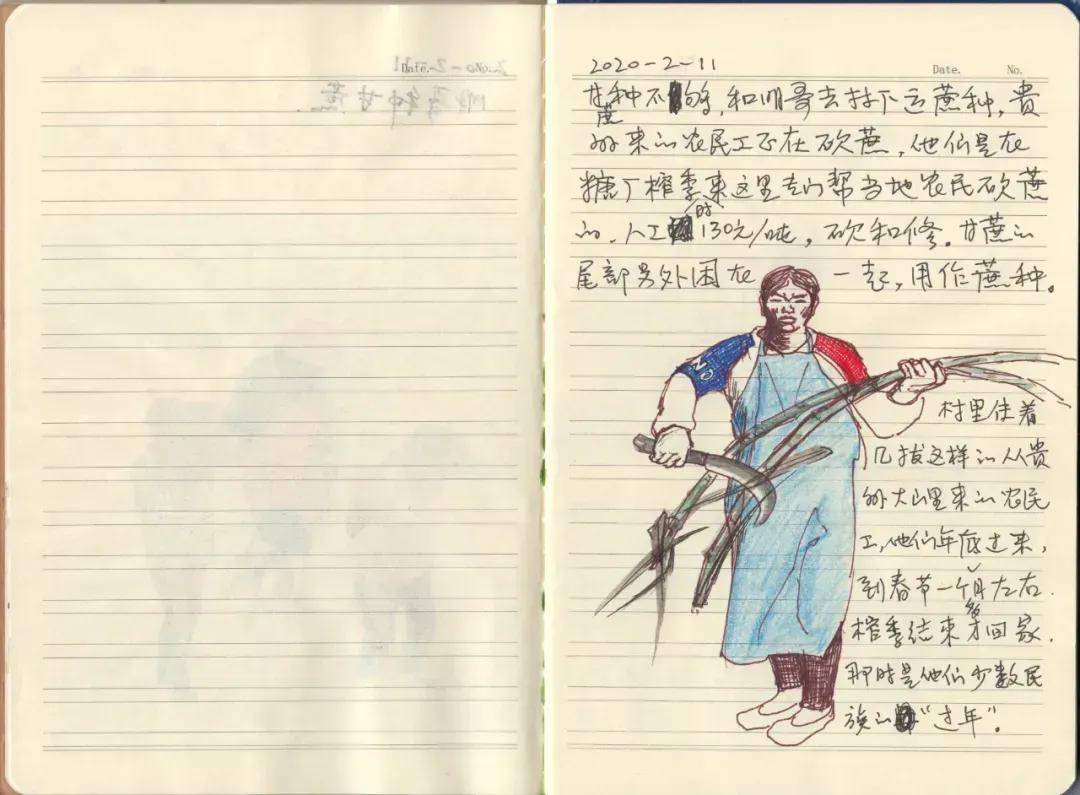 2020-2-11 Date. No.
甘蔗种不够,和明哥去村下运蔗种,贵
州来的农民工正在砍蔗,他们是在
糖厂榨季时来这里专门帮当地农民砍蔗
的、人工130元/吨,砍和修。甘蔗的
尾部另外困在一起,用作蔗种。
村里住着
几拔这样的从贵
州大山里来的农民
工,他们年底过来,
到春节一个多月左右.
榨季结束才回家.
那时是他们少数民
族的“过年”。